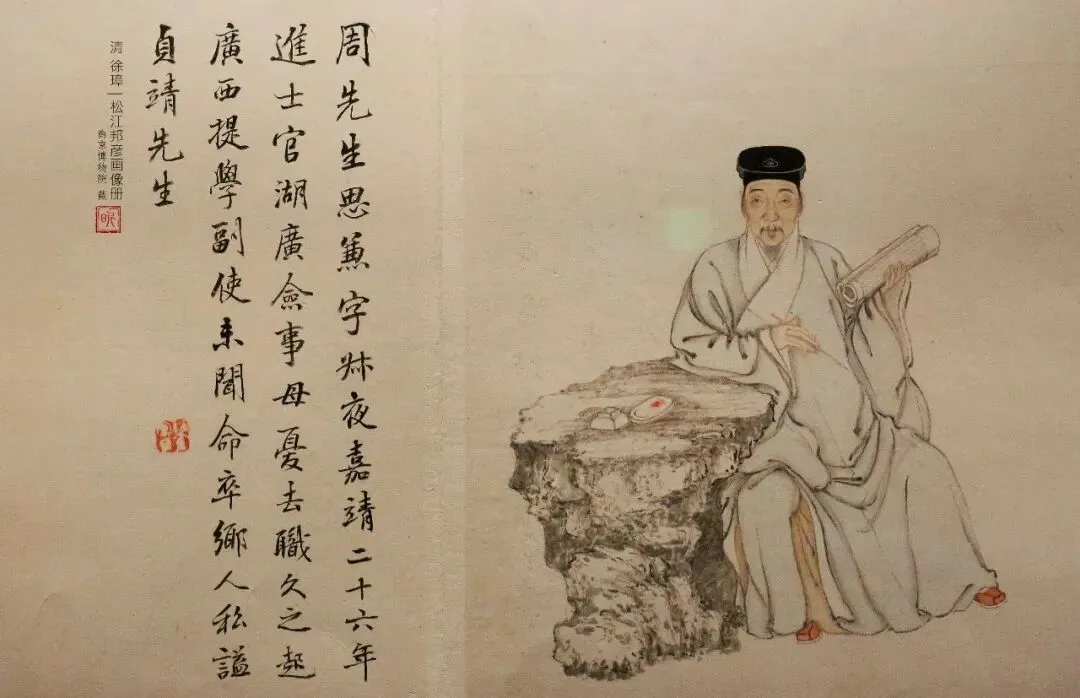 周先生思蒹字𡖖夜嘉靖二十六年
進士官湖廣僉事母憂去職久之起
廣西提學副使未聞命卒鄉人私謚
貞靖先生
清 徐璋 | 松江邦彦画像册
南京博物院 藏